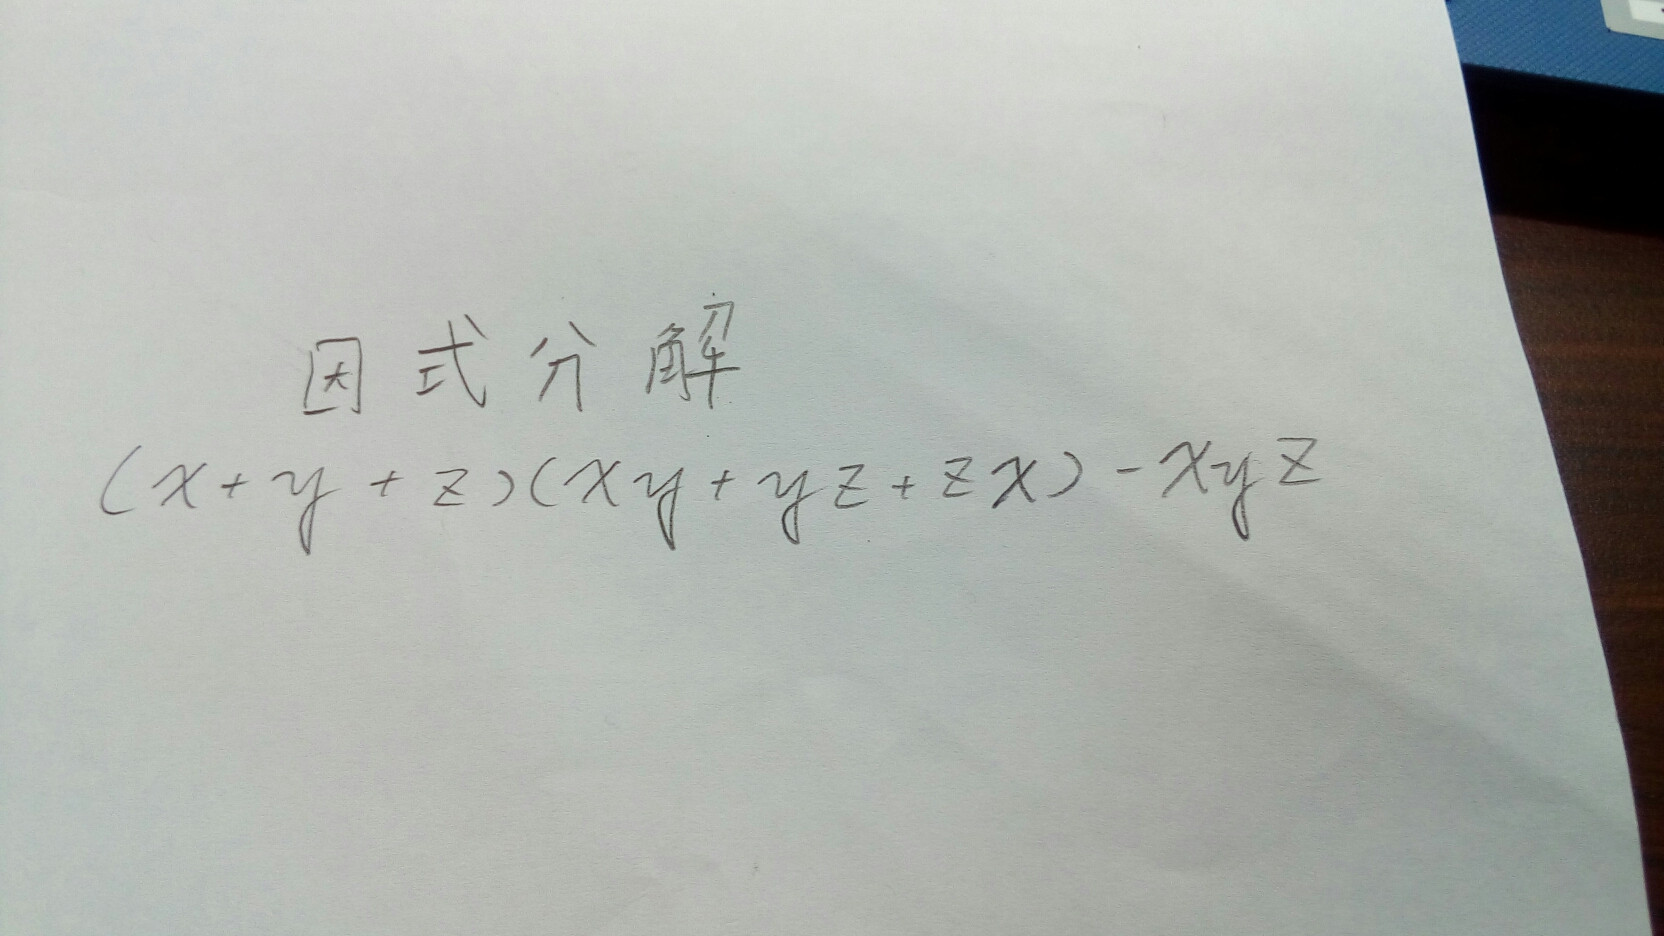 因式分解
(x+y+z)(xy+yz+zx)-xyz